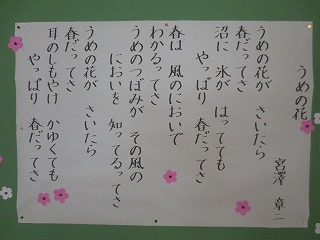 うめの花
宮澤 章二
うめの花が さいたら
春だってさ
沼に 氷が はってても
やっぱり 春だってさ
春は 風のにおいで
わかるってさ
うめのつぼみが その風の
においを 知ってるってさ
うめの花が さいたら
春だってさ
耳のしもやけ かゆくても
やっぱり 春だってさ